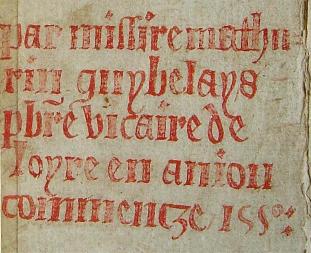 par missire mathu-
rin guybelays
pbr̃e vicaire de
loyre en aniou
commentze 1550